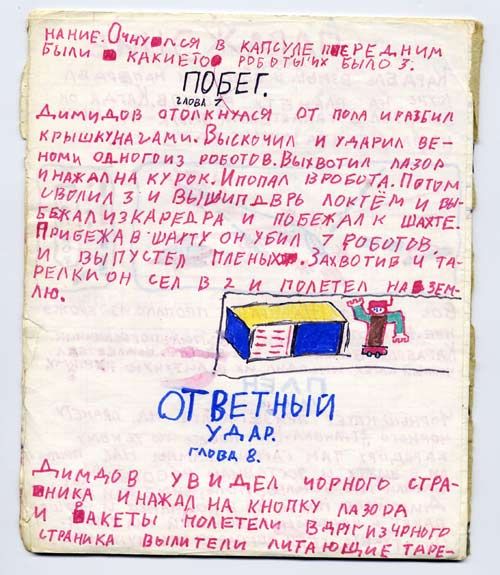 НАНИЕ. ОЧНУЛСЯ В КАПСУЛЕ ПЕРЕДНИМ
БЫЛИ КАКИЕТО РОБОТЫ ИХ БЫЛО 3.
ПОБЕГ.
ГЛОВА 7
ДИМИДОВ ОТОЛКНУЛСЯ ОТ ПОЛА И РАЗБИЛ
КРЫШКУ НАГАМИ. ВЫСКОЧИЛ И УДАРИЛ ВЕ-
НОМИ ОДНОГО ИЗ РОБОТОВ. ВЫХВОТИЛ ЛАЗОР
И НАЖАЛ НА КУРОК. И ПОПАЛ В РОБОТА. ПОТОМ
СВОЛИЛ 3 И ВЫШИП ДВРЬ ЛОКТЁМ И ВЫ-
БЕЖАЛ ИЗ КАРЕДРА И ПОБЕЖАЛ К ШАХТЕ.
ПРИБЕЖАВ ШАХТУ ОН УБИЛ 7 РОБОТОВ,
И ВЫПУСТЕЛ ПЛЕНЫХ. ЗАХВОТИВ 4 ТА-
РЕЛКИ ОН СЕЛ В 2 И ПОЛЕТЕЛ НА ЗЕМ-
ЛЮ.
ОТВЕТНЫЙ
УДАР.
ГЛОВА 8.
ДИМДОВ УВИДЕЛ ЧОРНОГО СТРА-
НИКА И НАЖАЛ НА КНОПКУ ЛАЗОРА
И РАКЕТЫ ПОЛЕТЕЛИ ВДРУГ ИЗ ЧРНОГО
СТРАНИКА ВЫЛИТЕЛИ ЛИТАЮЩИЕ ТАРЕ-